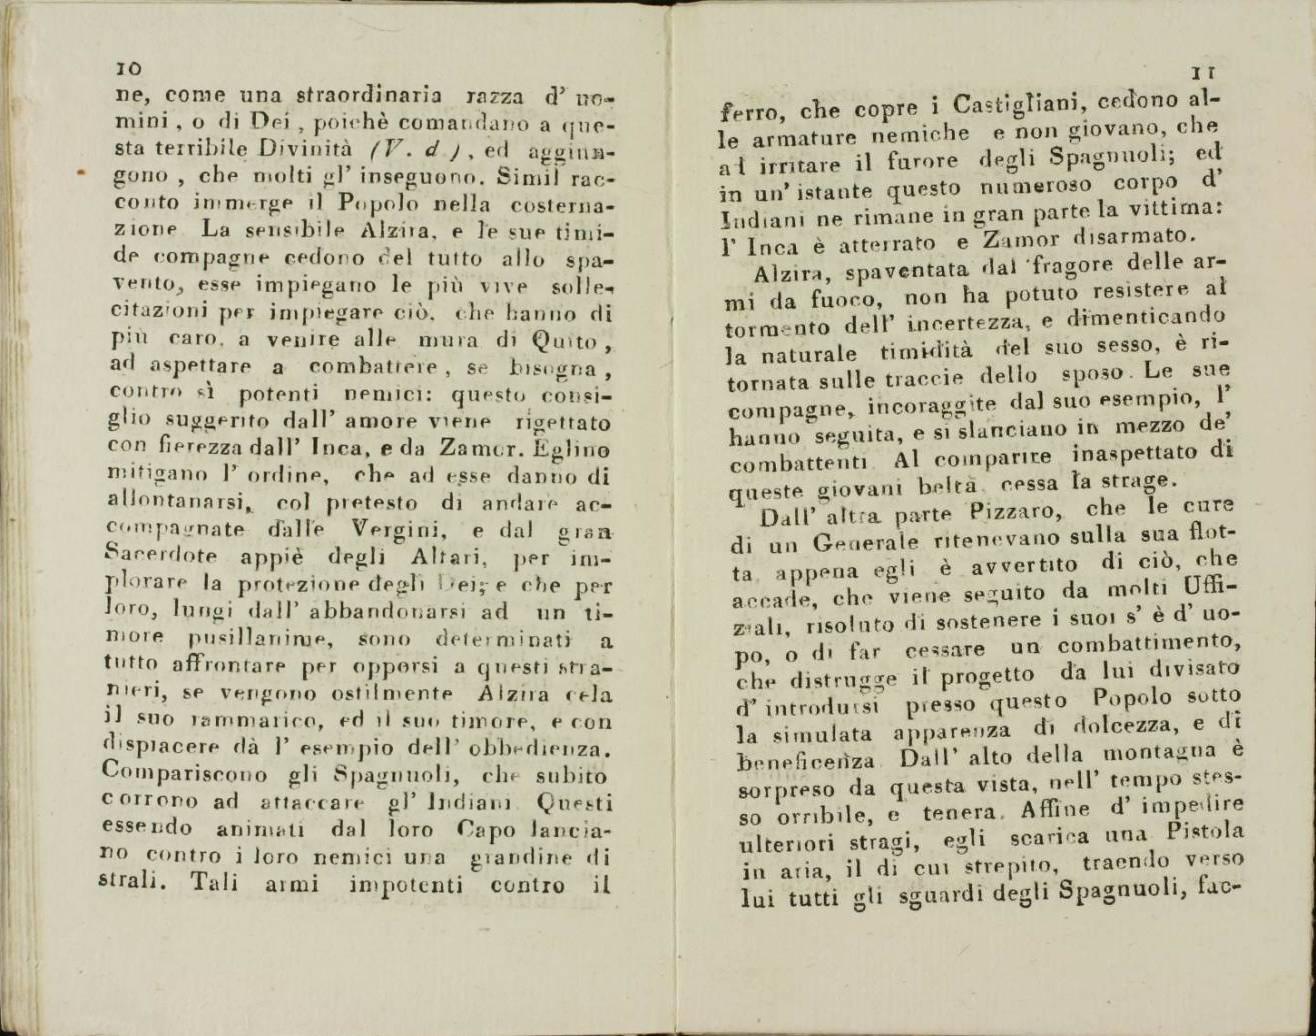 10
ne, come una straordinaria razza d' uo-
mini, o di Dei, poichè comandano a que-
sta terribile Divinità (V. d), ed aggiun-
gono, che molti gl' inseguono. Simil rac-
conto immerge il Popolo nella costerna-
zione La sensibile Alzira, e le sue timi-
de compagne cedono del tutto allo spa-
vento, esse impiegano le più vive solle-
citazioni per impiegare ciò, che hanno di
più caro, a venire alle mura di Quito,
ad aspettare a combattere, se bisogna,
contro sì potenti nemici: questo consi-
glio suggerito dall' amore viene rigettato
con fierezza dall' Inca, e da Zamor. Eglino
mitigano l' ordine, che ad esse danno di
allontanarsi, col pretesto di andare ac-
compagnate dalle Vergini, e dal gran
Sacerdote appiè degli Altari, per im-
plorare la protezione degli Dei; e che per
loro, lungi dall' abbandonarsi ad un ti-
more pusillanime, sono determinati a
tutto affrontare per opporsi a questi stra-
nieri, se vengono ostilmente Alzira cela
il suo rammarico, ed il suo timore, e con
dispiacere dà l' esempio dell' obbedienza.
Compariscono gli Spagnuoli, che subito
corrono ad attaccare gl' Indiani Questi
essendo animati dal loro Capo lancia-
no contro i loro nemici una grandine di
strali. Tali armi impotenti contro il
11
ferro, che copre i Castigliani, cedono al-
le armature nemiche e non giovano, che
ad irritare il furore degli Spagnuoli; ed
in un' istante questo numeroso corpo d'
Indiani ne rimane in gran parte la vittima:
l' Inca è atterrato e Zamor disarmato.
Alzira, spaventata dal fragore delle ar-
mi da fuoco, non ha potuto resistere al
tormento dell' incertezza, e dimenticando
la naturale timidità del suo sesso, è ri-
tornata sulle traccie dello sposo. Le sue
compagne, incoraggite dal suo esempio, l'
hanno seguita, e si slanciano in mezzo de'
combattenti Al comparire inaspettato di
queste giovani beltà cessa la strage.
Dall' altra parte Pizzaro, che le cure
di un Generale ritenevano sulla sua flot-
ta appena egli è avvertito di ciò, che
accade, che viene seguito da molti Uffi-
ziali, risoluto di sostenere i suoi s' è d' uo-
po, o di far cessare un combattimento,
che distrugge il progetto da lui divisato
d' introdursi presso questo Popolo sotto
la simulata apparenza di dolcezza, e di
beneficenza Dall' alto della montagna è
sorpreso da questa vista, nell' tempo stes-
so orribile, e tenera. Affine d' impedire
ulteriori stragi, egli scarica una Pistola
in aria, il di cui strepito, traendo verso
lui tutti gli sguardi degli Spagnuoli, fac-